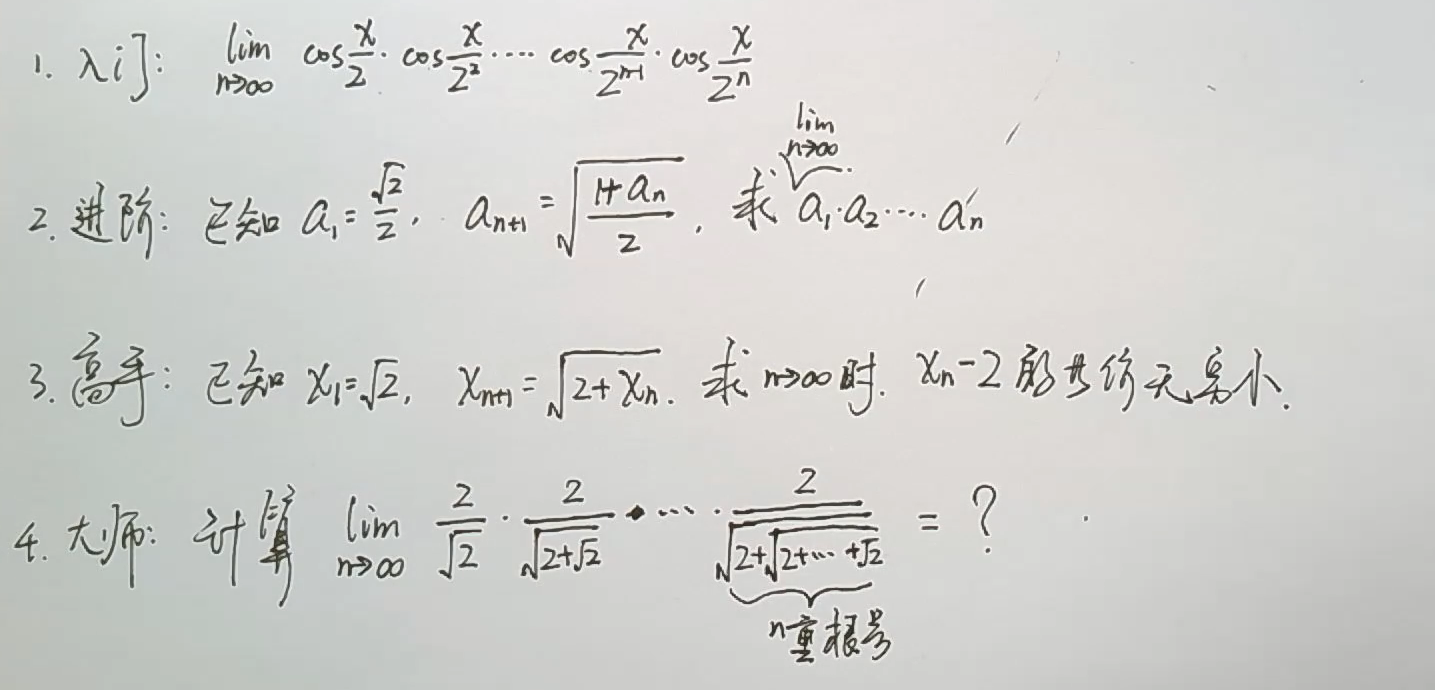 1. 入门: lim n→∞ cos x/2 · cos x/2² ···· cos x/2ⁿ⁻¹ · cos x/2ⁿ
2. 进阶: 已知 a₁ = √2/2, aₙ₊₁ = √((1+aₙ)/2), 求 lim n→∞ a₁·a₂···· aₙ
3. 高手: 已知 x₁=√2, xₙ₊₁ = √(2+xₙ). 求 n→∞时. xₙ-2 的等价无穷小.
4. 大师: 计算 lim n→∞ 2/√2 · 2/√(2+√2) · ··· · 2/√(2+√(2+···+√2)) = ?
n重根号